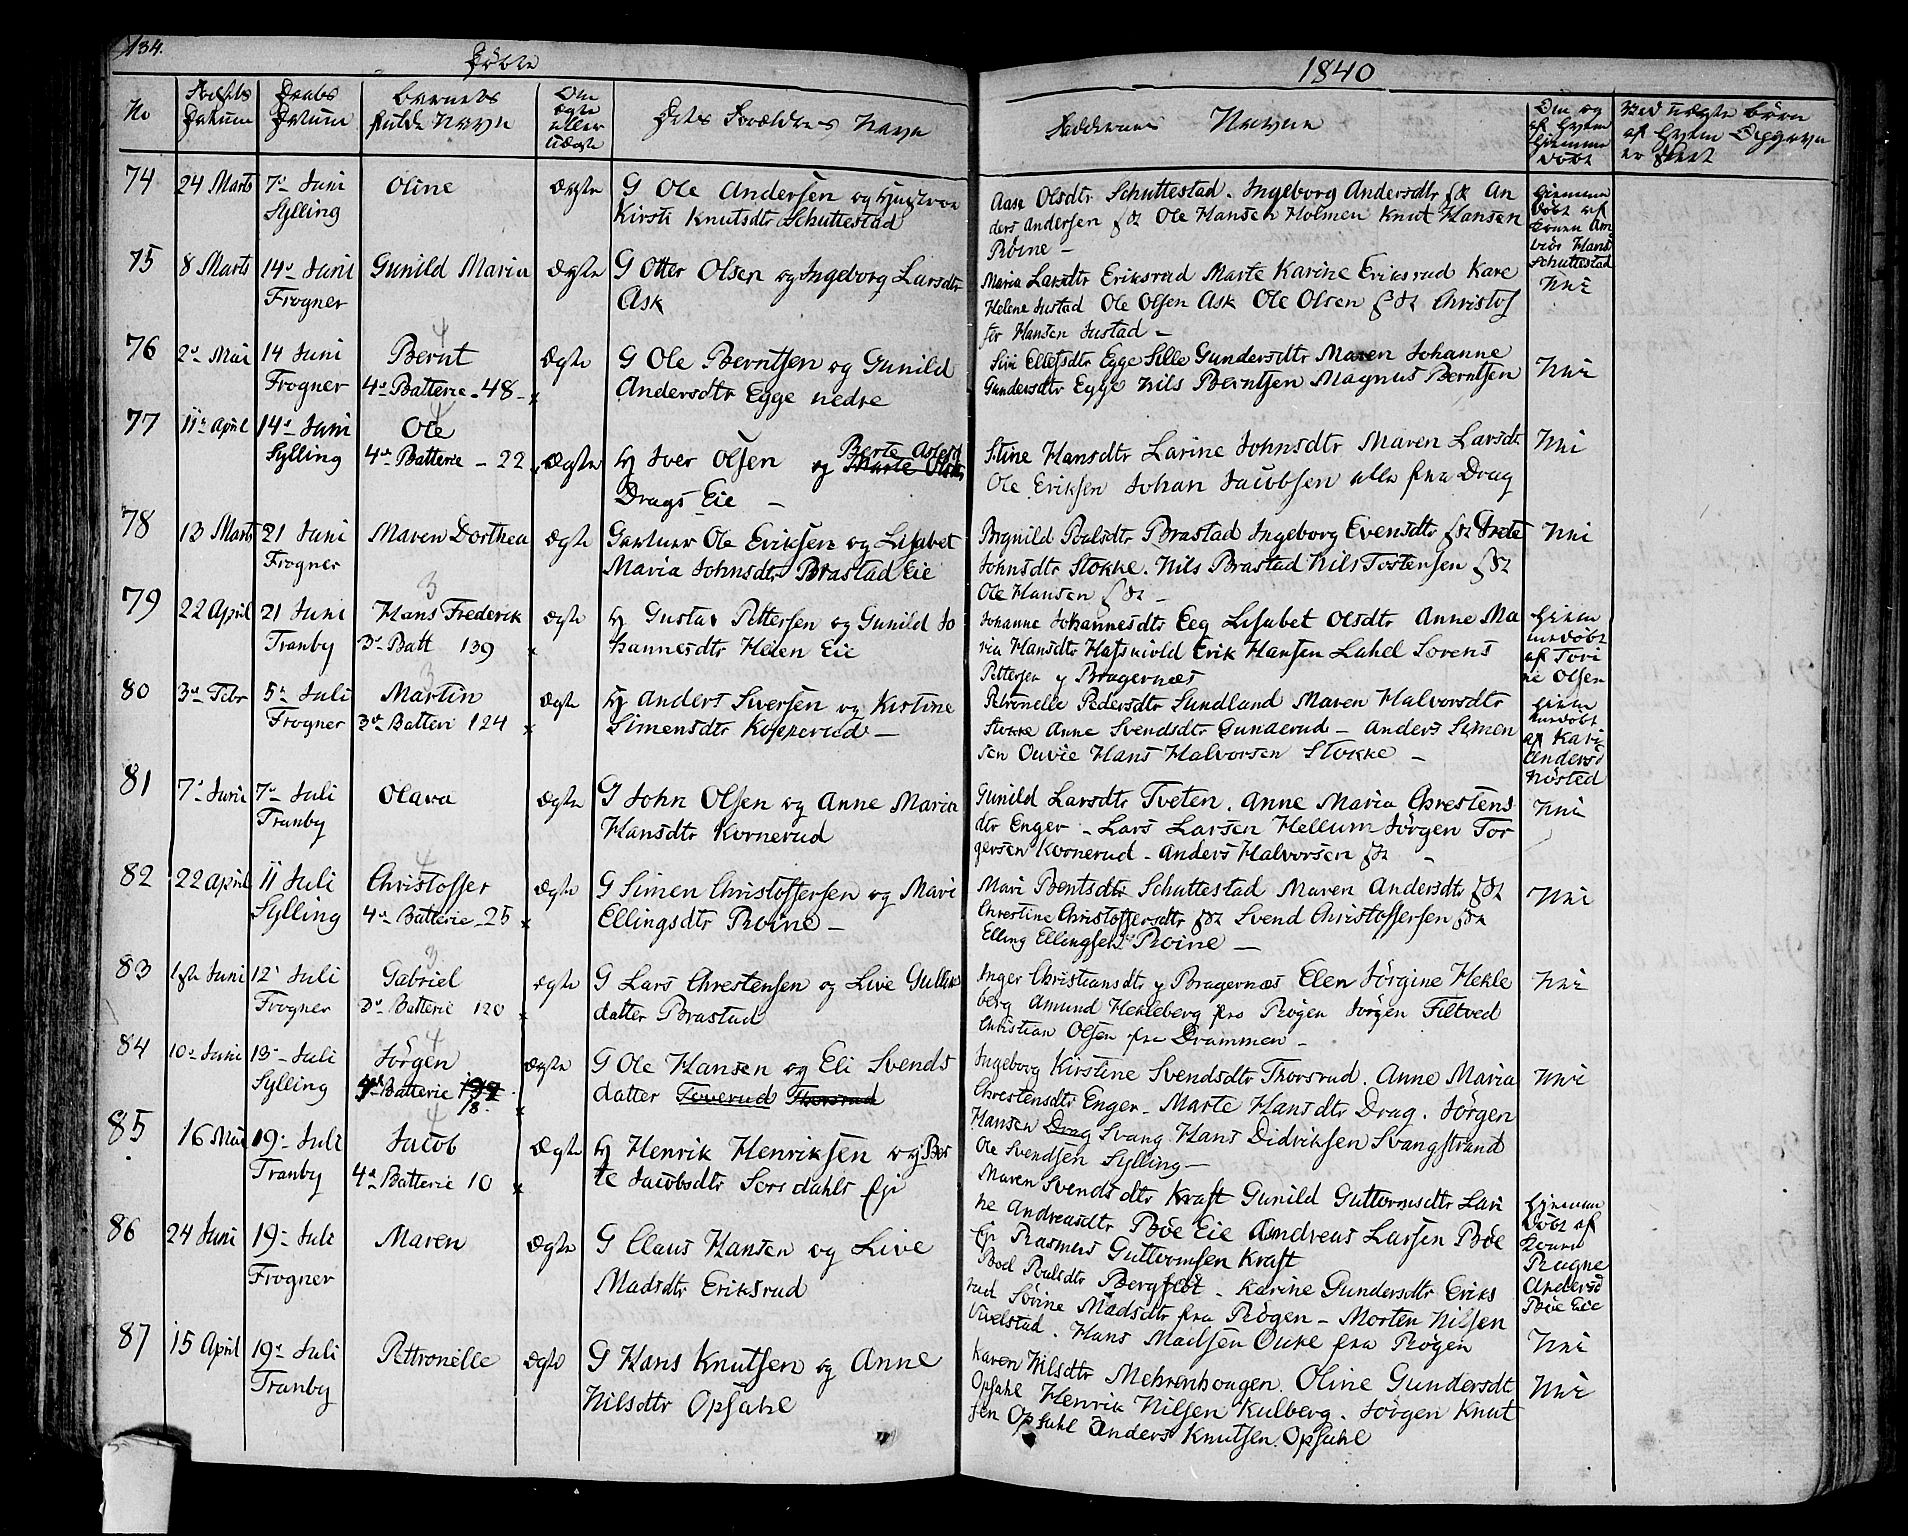 134.
Døbte
1840
No
Fødsels Datum
Daabs Datum
Barnets fulde Navn
Om ægte eller uægte
Dets Forældres Navn
Faddernes Navne
Om og af hvem hjemme døbt
Ved uægte børn af hvem Opgaven er skeet
74
24 Marts
7de Juni
Sylling
Oline
Ægte
G Ole Andersen og Hustroe
Kirsti Knutsdtr Schuttestad
Aase Olsdtr Schuttestad. Ingeborg Andersdtr An
ders Andersen Ole Hansen Holmen Knut Hansen
Roine –
Hjemme
døbt af
Schuttestad
75
8 Marts
14de Juni
Frogner
Gunild Maria
Ægte
G Otter Olsen og Ingeborg Larsdtr
Ask
Maria Larsdtr Eriksrud Marte Karine Eriksrud Kare
Helene Justad Ole Olsen Ask Ole Olsen Christof
fer Hansen Justad –
Nei
76
2de Mai
14 Juni
Frogner
4
Bernt
4de Batterie – 48 –
Ægte
G Ole Berntsen og Gunild
Andersdtr Egge nedre
Siri Ellefsdtr Egge Sille Gundersdtr Maren Johanne
Gundersdtr Egge Nils Berntsen Magnus Berntsen
Nei
77
11te April
14de Juni
Sylling
4
Ole
4de Batterie – 22
Ægte
Hj Iver Olsen og Marte Olsdtr
Berte Aslesd
Drags Eie –
Stine Hansdtr Larine Johnsdtr Maren Larsdtr
Ole Eriksen Johan Jacobsen alle fra Drag
Nei
78
13 Marts
21 Juni
Frogner
Maren Dorthea
Ægte
Gartner Ole Eriksen og Lisabet
Maria Johnsdtr Brastad Eie
Bognild Paulsdtr Brastad Ingeborg Evensdtr Grete
Johnsdtr Stokke. Nils Brastad Nils Tostensen
Ole Hansen –
Nei
79
22 April
21 Juni
Tranby
3
Hans Frederik
3de Batt 139
Ægte
Hj Gustav Pettersen og Gunild Jo
hannesdtr Heien Eie
Johanne Johannesdtr Eeg Lisabet Olsdtr Anne Ma
ria Hansdtr Erik Hansen Lahel Sorens
Pettersen y Bragernæs
Hjem
medøbt
af Tori
ne Olsen
80
3de Febr
5te Juli
Frogner
3
Martin
3de Batteri 124
Ægte
Hj Anders Siversen og Kirstine
Simensdtr Kopperud –
Petronelle Pedersdtr Sundland Maren Halvorsdtr
Stokke Anne Svendsdtr Gunderud – Anders Simen
sen Ouvie Hans Halvorsen Stokke –
Hjem
medøbt
af Kari
Andersd
Nøsted
81
7de Juni
7de Juli
Tranby
Olava
Ægte
G John Olsen og Anne Maria
Hansdtr Kornerud
Gunild Larsdtr Tveten. Anne Maria Chrestens
dtr Enger – Lars Larsen Hellum Jørgen Tor
gersen Kornerud – Anders Halvorsen –
Nei
82
22 April
11 Juli
Sylling
4
Christoffer
4de Batterie – 25
Ægte
G Simen Christoffersen og Mari
Ellingsdtr Roine –
Mari Bentsdtr Schuttestad Maren Andersdtr
Chrestine Christoffersdtr Svend Christoffersen
Elling Ellingsen Roine –
Nei
83
1ste Juni
12te Juli
Frogner
3
Gabriel
3de Batterie 120
Ægte
G Lars Chrestensen og Live Gulliks
datter Brastad
Inger Christiansdtr y Bragernæs Elen Jørgine Hekle
berg Amund Hekleberg fra Røgen Jørgen Filtved
Christian Olsen fra Drammen –
Nei
84
10de Juni
13de Juli
Sylling
4
Jørgen
4de Batterie
18.
Ægte
G Ole Hansen og Eli Svends
datter Toverud Thorsrud
Ingeborg Kirstine Svendsdtr Thorsrud. Anne Maria
Chrestensdtr Enger – Marte Hansdtr Drag. Jørgen
Hansen Drag Svang Hans Didriksen Svangstrand
Ole Svendsen Sylling –
Nei
85
16 Mai
19de Juli
Tranby
4
Jacob
4de Batterie 10
Ægte
Hj Henrik Henriksen og Ber
te Jacobsdtr Sorsdahls Eje
Maren Svendsdtr Kraft Gunild Guttormsdtr Lari
ne Andreasdtr Bøe Eie Andreas Larsen Bøe
Eje Rasmus Guttormsen Kraft
Hjemme
døbt af
Ragne
Andersd
Bøe Eie
86
24 Juni
19de Juli
Frogner
Maren
Ægte
G Claus Hansen og Live
Madsdtr Eriksrud
Boel Paulsdtr Bergflot – Karine Gundersdtr Eriks
rud Sørine Madsdtr fra Røgen – Morten Nilsen
Vivelstad. Hans Madsen Ouke fra Røgen
Nei
87
15 April
19de Juli
Tranby
Pettronelle
Ægte
G Hans Knutsen og Anne
Nilsdtr Opsahl
Karen Nilsdtr Mehrenhougen. Oline Gundersdt
Opsahl Henrik Nilsen Kulberg. Jørgen Knut
sen Opsahl Anders Knutsen. Opsahl
Nei